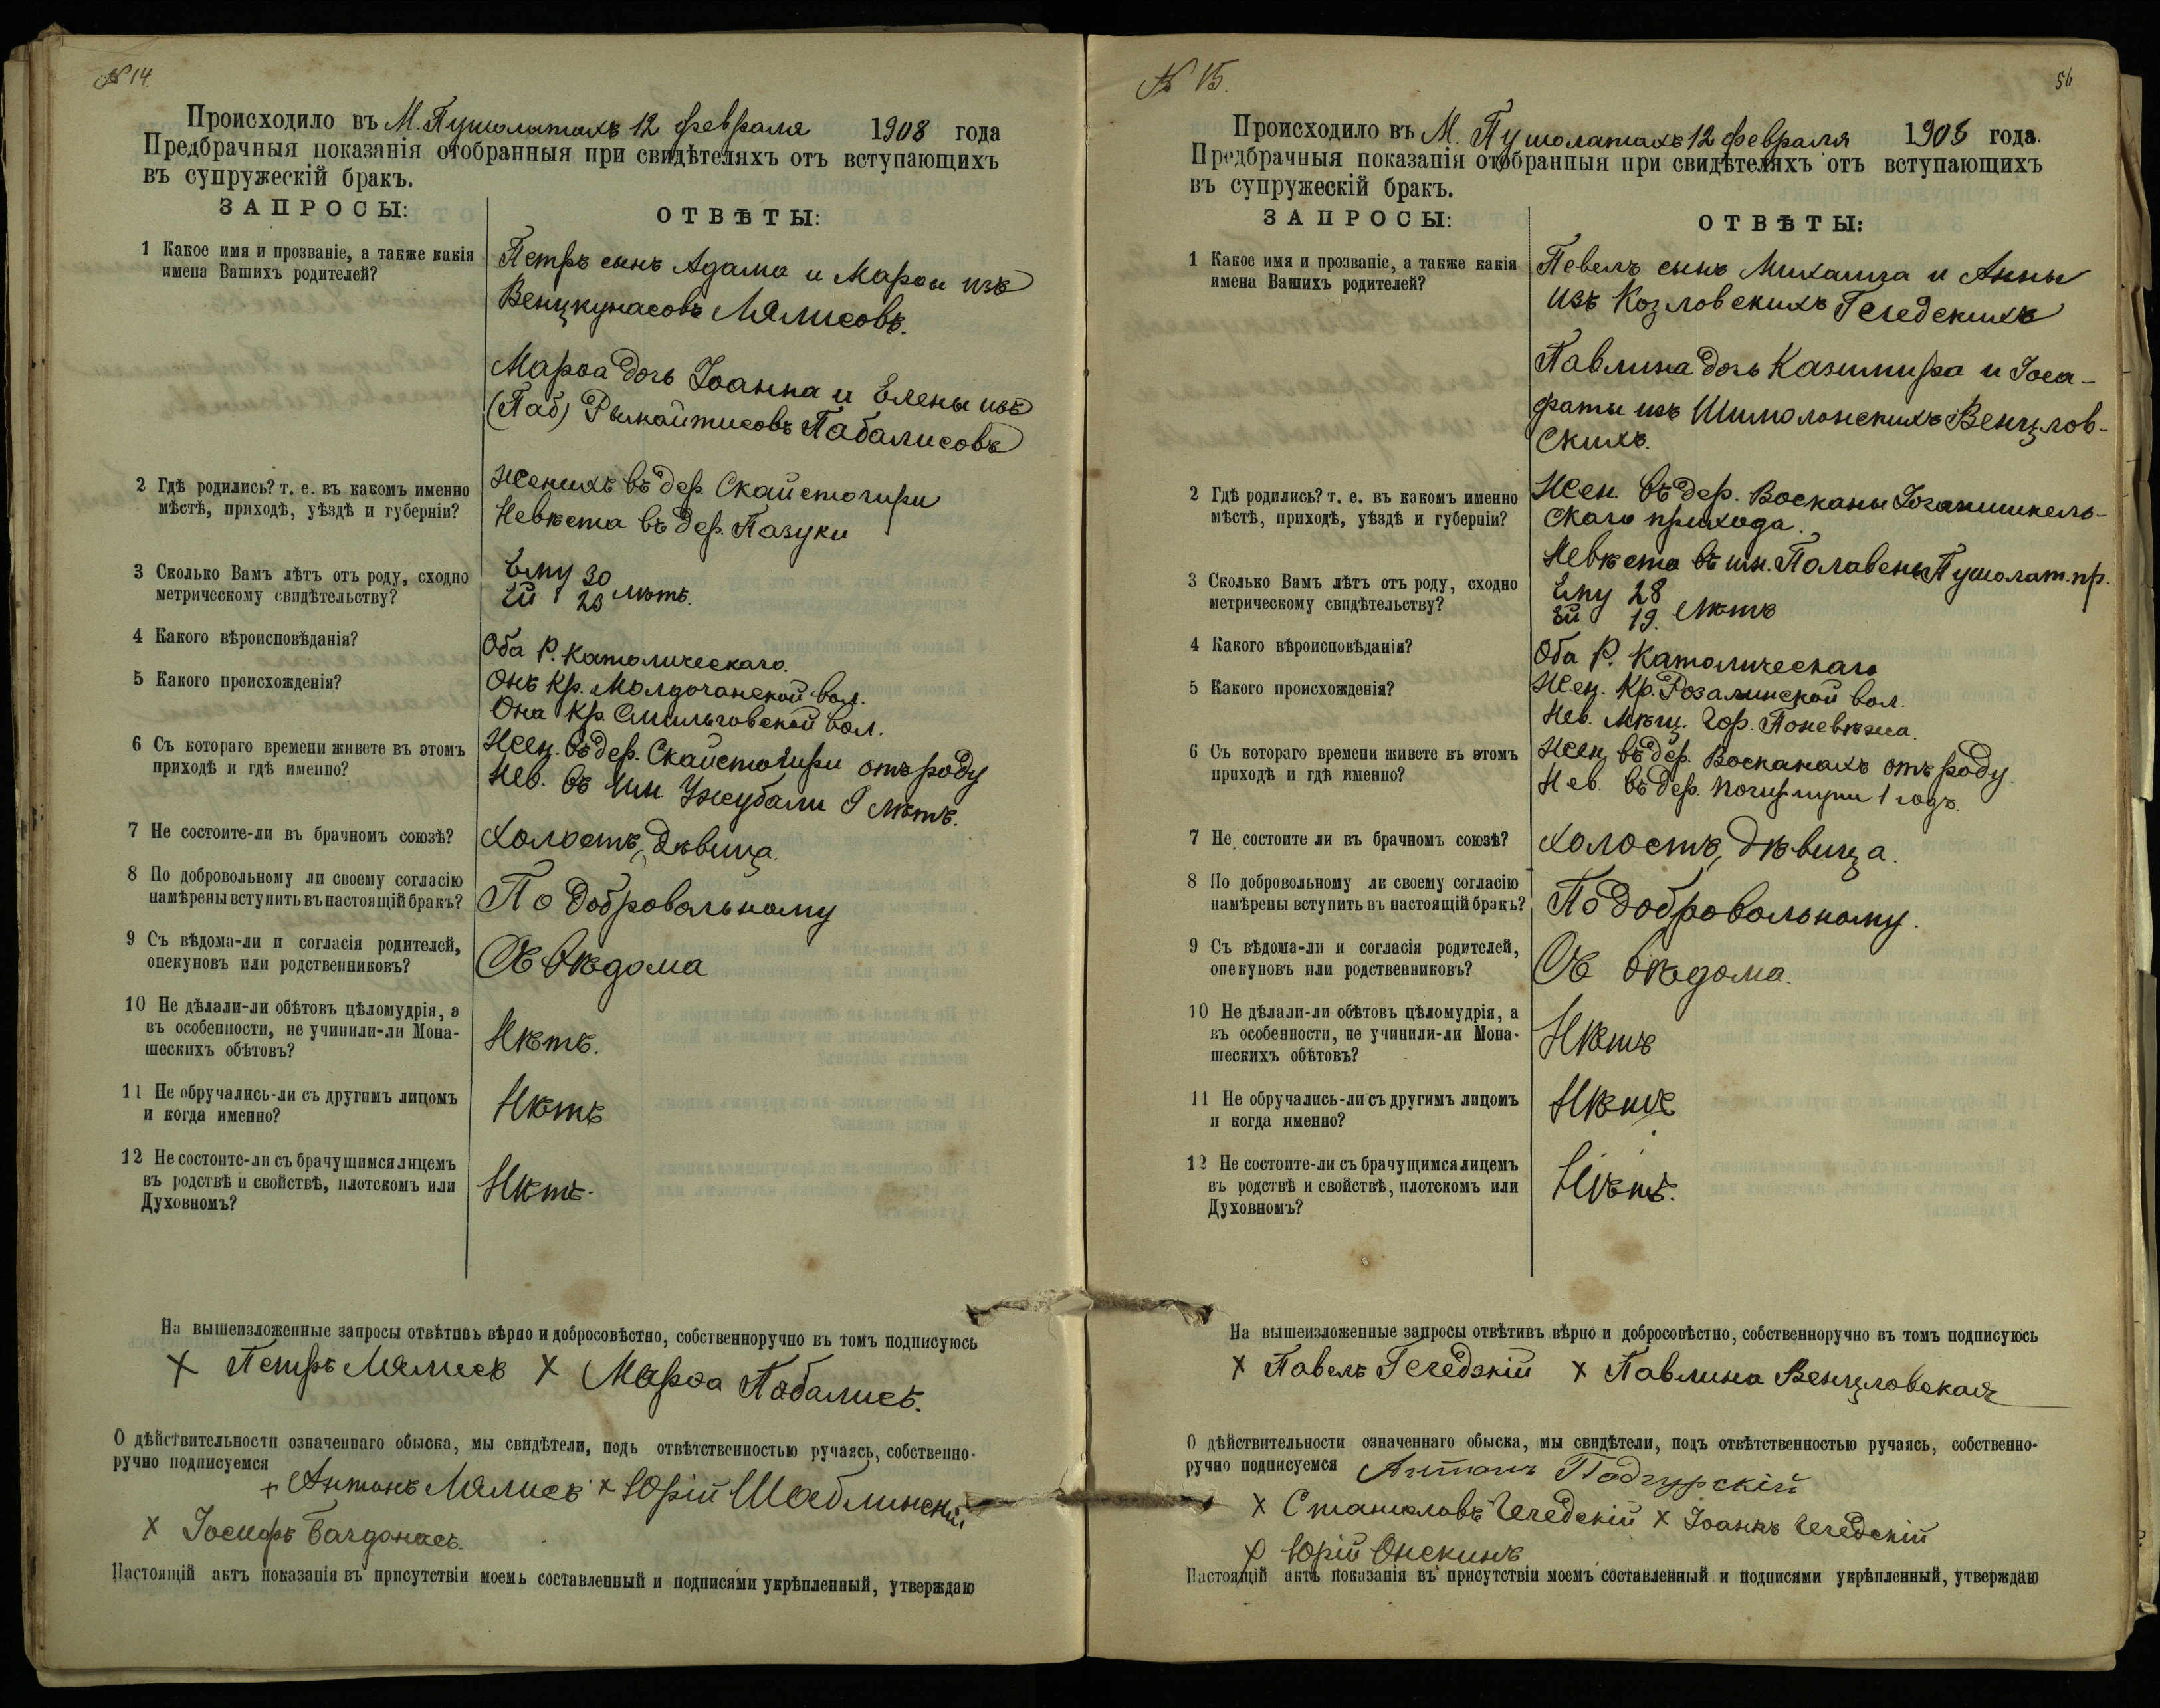 № 14.
Происходило въ М. Пушолатахъ 12 февраля 1908 года
Предбрачныя показанія отобранныя при свидѣтеляхъ отъ вступающихъ
въ супружескій бракъ.
ЗАПРОСЫ:
ОТВѢТЫ:
1 Какое имя и прозваніе, а также какія
имена Вашихъ родителей?
Петръ сынъ Адама и Марѳы изъ
Венцкунасовъ Лялисовъ.
Марѳа дочь Іоанна и Елены изъ
(Паб) Рымайтисовъ Пабалисовъ
2 Гдѣ родились? т. е. въ какомъ именно
мѣстѣ, приходѣ, уѣздѣ и губерніи?
Женихъ въ дер. Скайстогири
Невѣста въ дер. Пазуки
3 Сколько Вамъ лѣтъ отъ роду, сходно
метрическому свидѣтельству?
Ему 30
Ей лѣтъ.
4 Какого вѣроисповѣданія?
Оба Р. Католическаго.
5 Какого происхожденія?
Онъ Кр. Молдочанской вол.
Она Кр. Смильговской вол.
6 Съ котораго времени живете въ этомъ
приходѣ и гдѣ именно?
Жен. въ дер. Скайстогири отъ роду
Нев. въ им Ужубали 9 лѣтъ.
7 Не состоите-ли въ брачномъ союзѣ?
Холостъ, Дѣвица.
8 По добровольному ли своему согласію
намѣрены вступить въ настоящій бракъ?
По добровольному
9 Съ вѣдома-ли и согласія родителей,
опекуновъ или родственниковъ?
Съ вѣдома
10 Не дѣлали-ли обѣтовъ цѣломудрія, а
въ особенности, не учинили-ли Мона-
шескихъ обѣтовъ?
Нѣтъ.
11 Не обручались-ли съ другимъ лицомъ
и когда именно?
Нѣтъ
12 Не состоите-ли съ брачущимся лицемъ
въ родствѣ и свойствѣ, плотскомъ или
Духовномъ?
Нѣтъ.
На вышеизложенные запросы отвѣтивъ вѣрно и добросовѣстно, собственноручно въ томъ подписуюсь
X Петръ Лялисъ X Марѳа Пабалисъ.
О дѣйствительности означеннаго обыска, мы свидѣтели, подъ отвѣтственностью ручаясь, собственно-
ручно подписуемся
+ Антонъ Лялисъ x Юрій Шаблинскій
X Іосифъ Багдонасъ.
Настоящій актъ показанія въ присутствіи моемъ составленный и подписями укрѣпленный, утверждаю
№ 15.
56
Происходило въ М. Пушолатахъ 12 февраля 1908 года.
Предбрачныя показанія отобранныя при свидѣтеляхъ отъ вступающихъ
въ супружескій бракъ.
ЗАПРОСЫ:
ОТВѢТЫ:
1 Какое имя и прозваніе, а также какія
имена Вашихъ родителей?
Певелъ сынъ Михаила и Анны
изъ Козловскихъ Гечедскихъ
Павлина дочь Казимира и Іоса-
фаты изъ Шимолонскихъ Венцлов-
скихъ.
2 Гдѣ родились? т. е. въ какомъ именно
мѣстѣ, приходѣ, уѣздѣ и губерніи?
Жен. въ дер. Восканы Іоганишкель-
скаго прихода.
Невѣста въ им. Палавены Пушолат. пр.
3 Сколько Вамъ лѣтъ отъ роду, сходно
метрическому свидѣтельству?
Ему 28
Ей 19. лѣтъ
4 Какого вѣроисповѣданія?
Оба Р. Католическаго
5 Какого происхожденія?
Жен. Кр. Розалинской вол.
Нев. Мѣщ. Гор. Поневѣжа.
6 Съ котораго времени живете въ этомъ
приходѣ и гдѣ именно?
Жен. въ дер. Восканахъ отъ роду.
Нев. въ дер. 1 годъ.
7 Не состоите ли въ брачномъ союзѣ?
Холостъ, Дѣвица.
8 По добровольному ли своему согласію
намѣрены вступить въ настоящій бракъ?
По добровольному.
9 Съ вѣдома-ли и согласія родителей,
опекуновъ или родственниковъ?
Съ вѣдома.
10 Не дѣлали-ли обѣтовъ цѣломудрія, а
въ особенности, не учинили-ли Мона-
шескихъ обѣтовъ?
Нѣтъ
11 Не обручались-ли съ другимъ лицомъ
и когда именно?
Нѣтъ
12 Не состоите-ли съ брачущимся лицемъ
въ родствѣ и свойствѣ, плотскомъ или
Духовномъ?
Нѣтъ.
На вышеизложенные запросы отвѣтивъ вѣрно и добросовѣстно, собственноручно въ томъ подписуюсь
X Павелъ Гечедзкій X Павлина Венцловская
О дѣйствительности означеннаго обыска, мы свидѣтели, подъ отвѣтственностью ручаясь, собственно-
ручно подписуемся Антонъ Подгурскій
X Станиславъ Гечедскій X Іоаннъ Гечедскій
X Юрій Онскинъ
Настоящій актъ показанія въ присутствіи моемъ составленный и подписями укрѣпленный, утверждаю